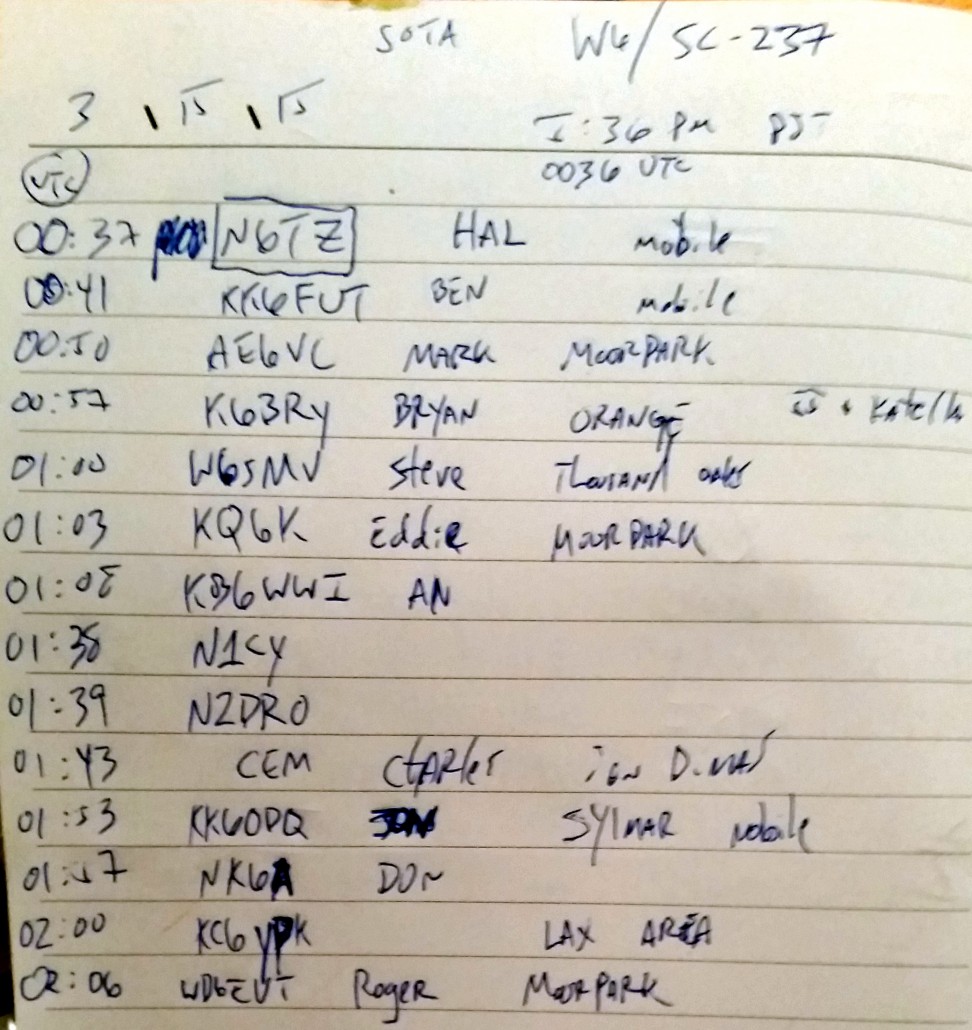 SOTA W6/SC-237
3 \ 15 \ 15
:36 PM PDT
UTC 0036 UTC
00:37 N6TZ HAL mobile
00:41 KK6FUT BEN mobile
00:50 AE6VC MARK MOORPARK
00:57 K63RY BRYAN ORANGE
01:00 W6SMV Steve Thousand oaks
01:03 KQ6K Eddie MOORPARK
01:08 KB6WWI AN
01:38 N1CY
01:39 N2DRO
01:43 CEM CHARles
01:53 KK6OPQ JON SYlMAR mobile
01:57 NK6A DON
02:00 KC6YPK LAX AREA
02:06 WD6EVT Roger MOORPARK